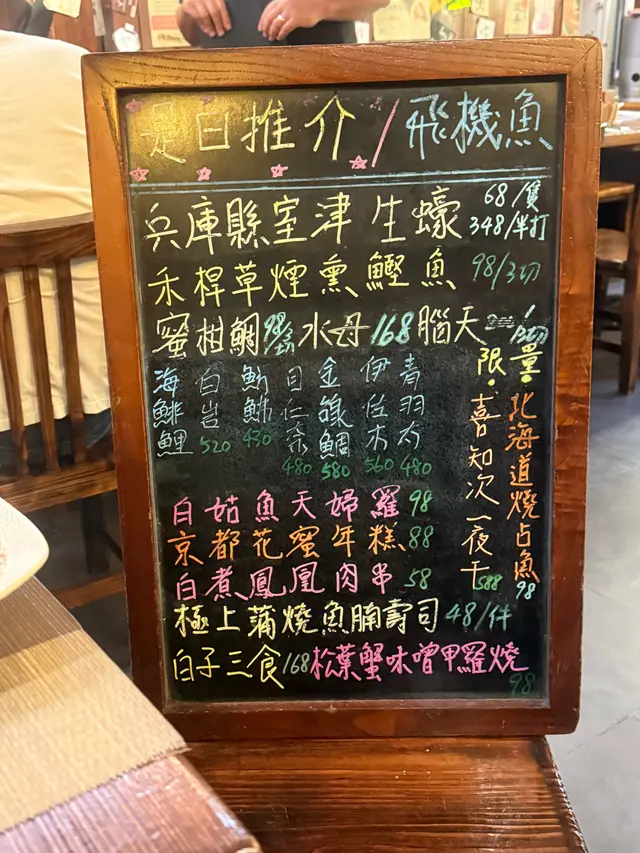 是日推介/飛機魚
兵庫縣室津生蠔 68/隻 348/半打
禾桿草煙熏鰹魚 98/3切
蜜柑鯛 水母168 腦天
限量
北海道燒占魚 98
喜知次一夜干 588
青羽太 480
伊佐木 560
金線鯛 580
目仁奈 480
430
白岩 520
海鯡鯉
白姑魚天婦羅 98
京都花蜜年糕 88
白煮鳳凰肉串 58
極上蒲燒魚腩壽司 48/件
白子三食168 松葉蟹味噌甲羅燒 98